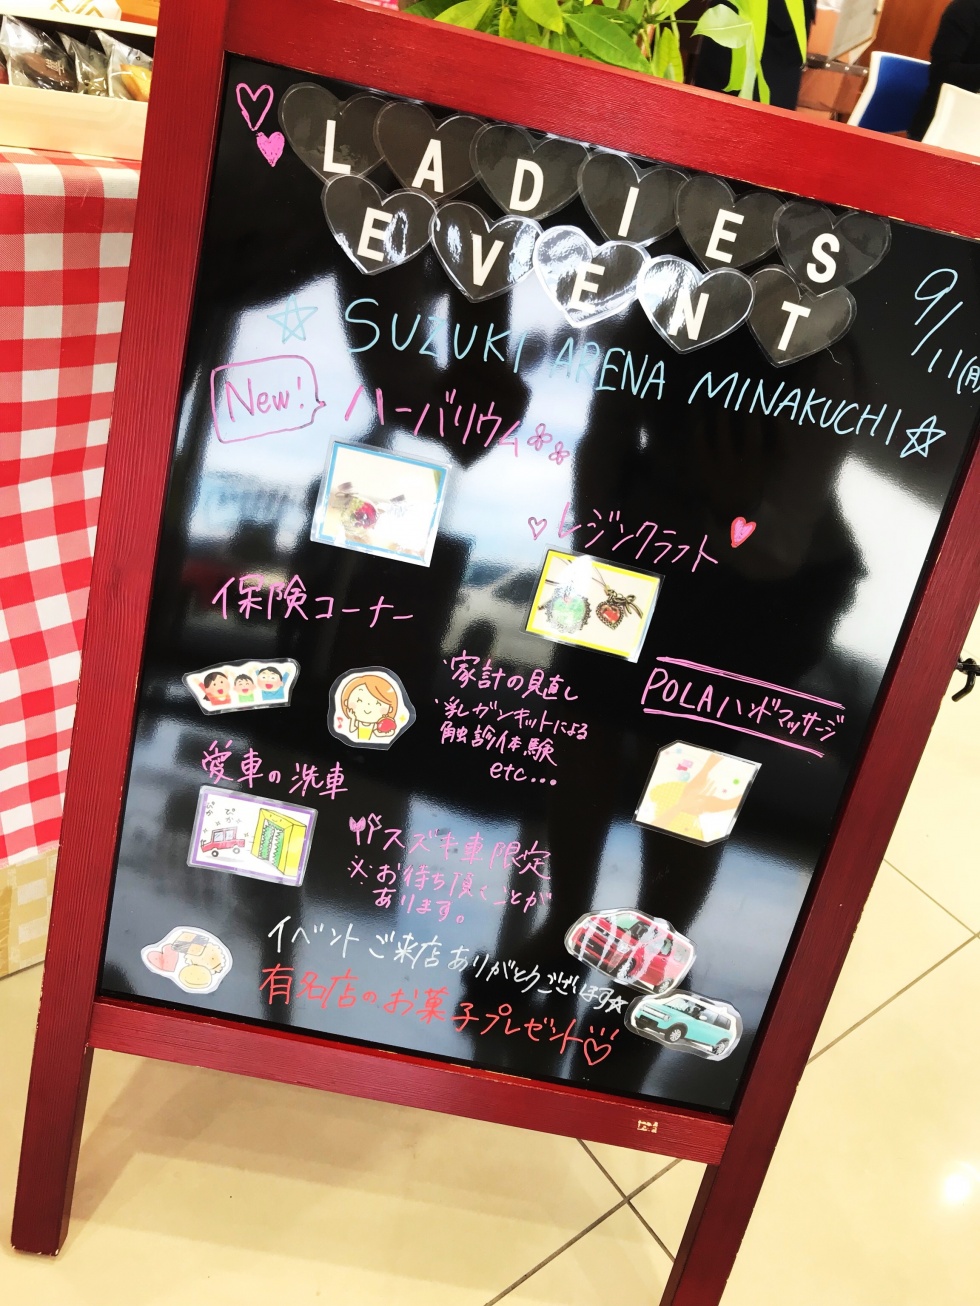 LADIES
EVENT
9/11(月)
☆SUZUKI ARENA MINAKUCHI☆
New! ハーバリウム
レジンクラフト
保険コーナー
家計の見直し
乳ガンキットによる
触診体験
etc...
POLAハンドマッサージ
愛車の洗車
ぴか
ぴか
スズキ車限定
※お待ち頂くことが
あります。
イベントご来店ありがとうございます☆
有名店のお菓子プレゼント♡